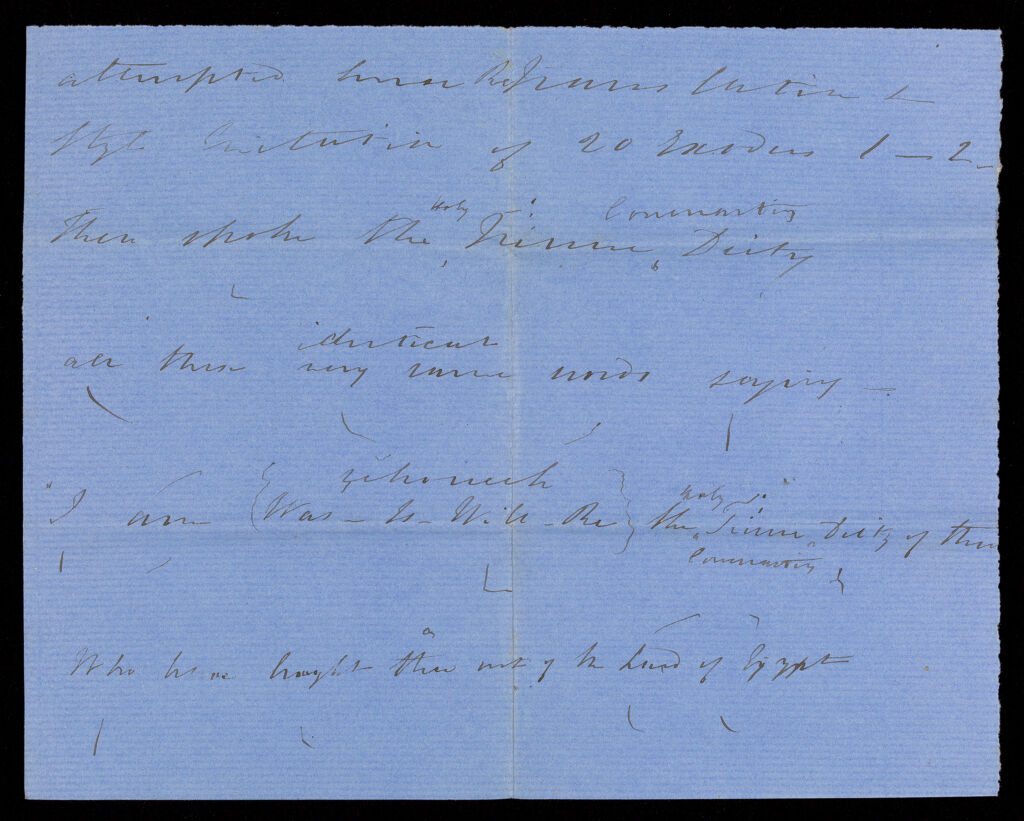 attempted Retranslation &
Style Imitation of 20 Exodus 1 - 2 -
Holy Covenanting
Then spoke the Triune Deity
identical
all these very same words saying -
Jehoveh
"I am {Was - Is - Will - Be} the Triune Deity of thee
Holy
Covenanting
Who have brought thee out of the Land of Egypt